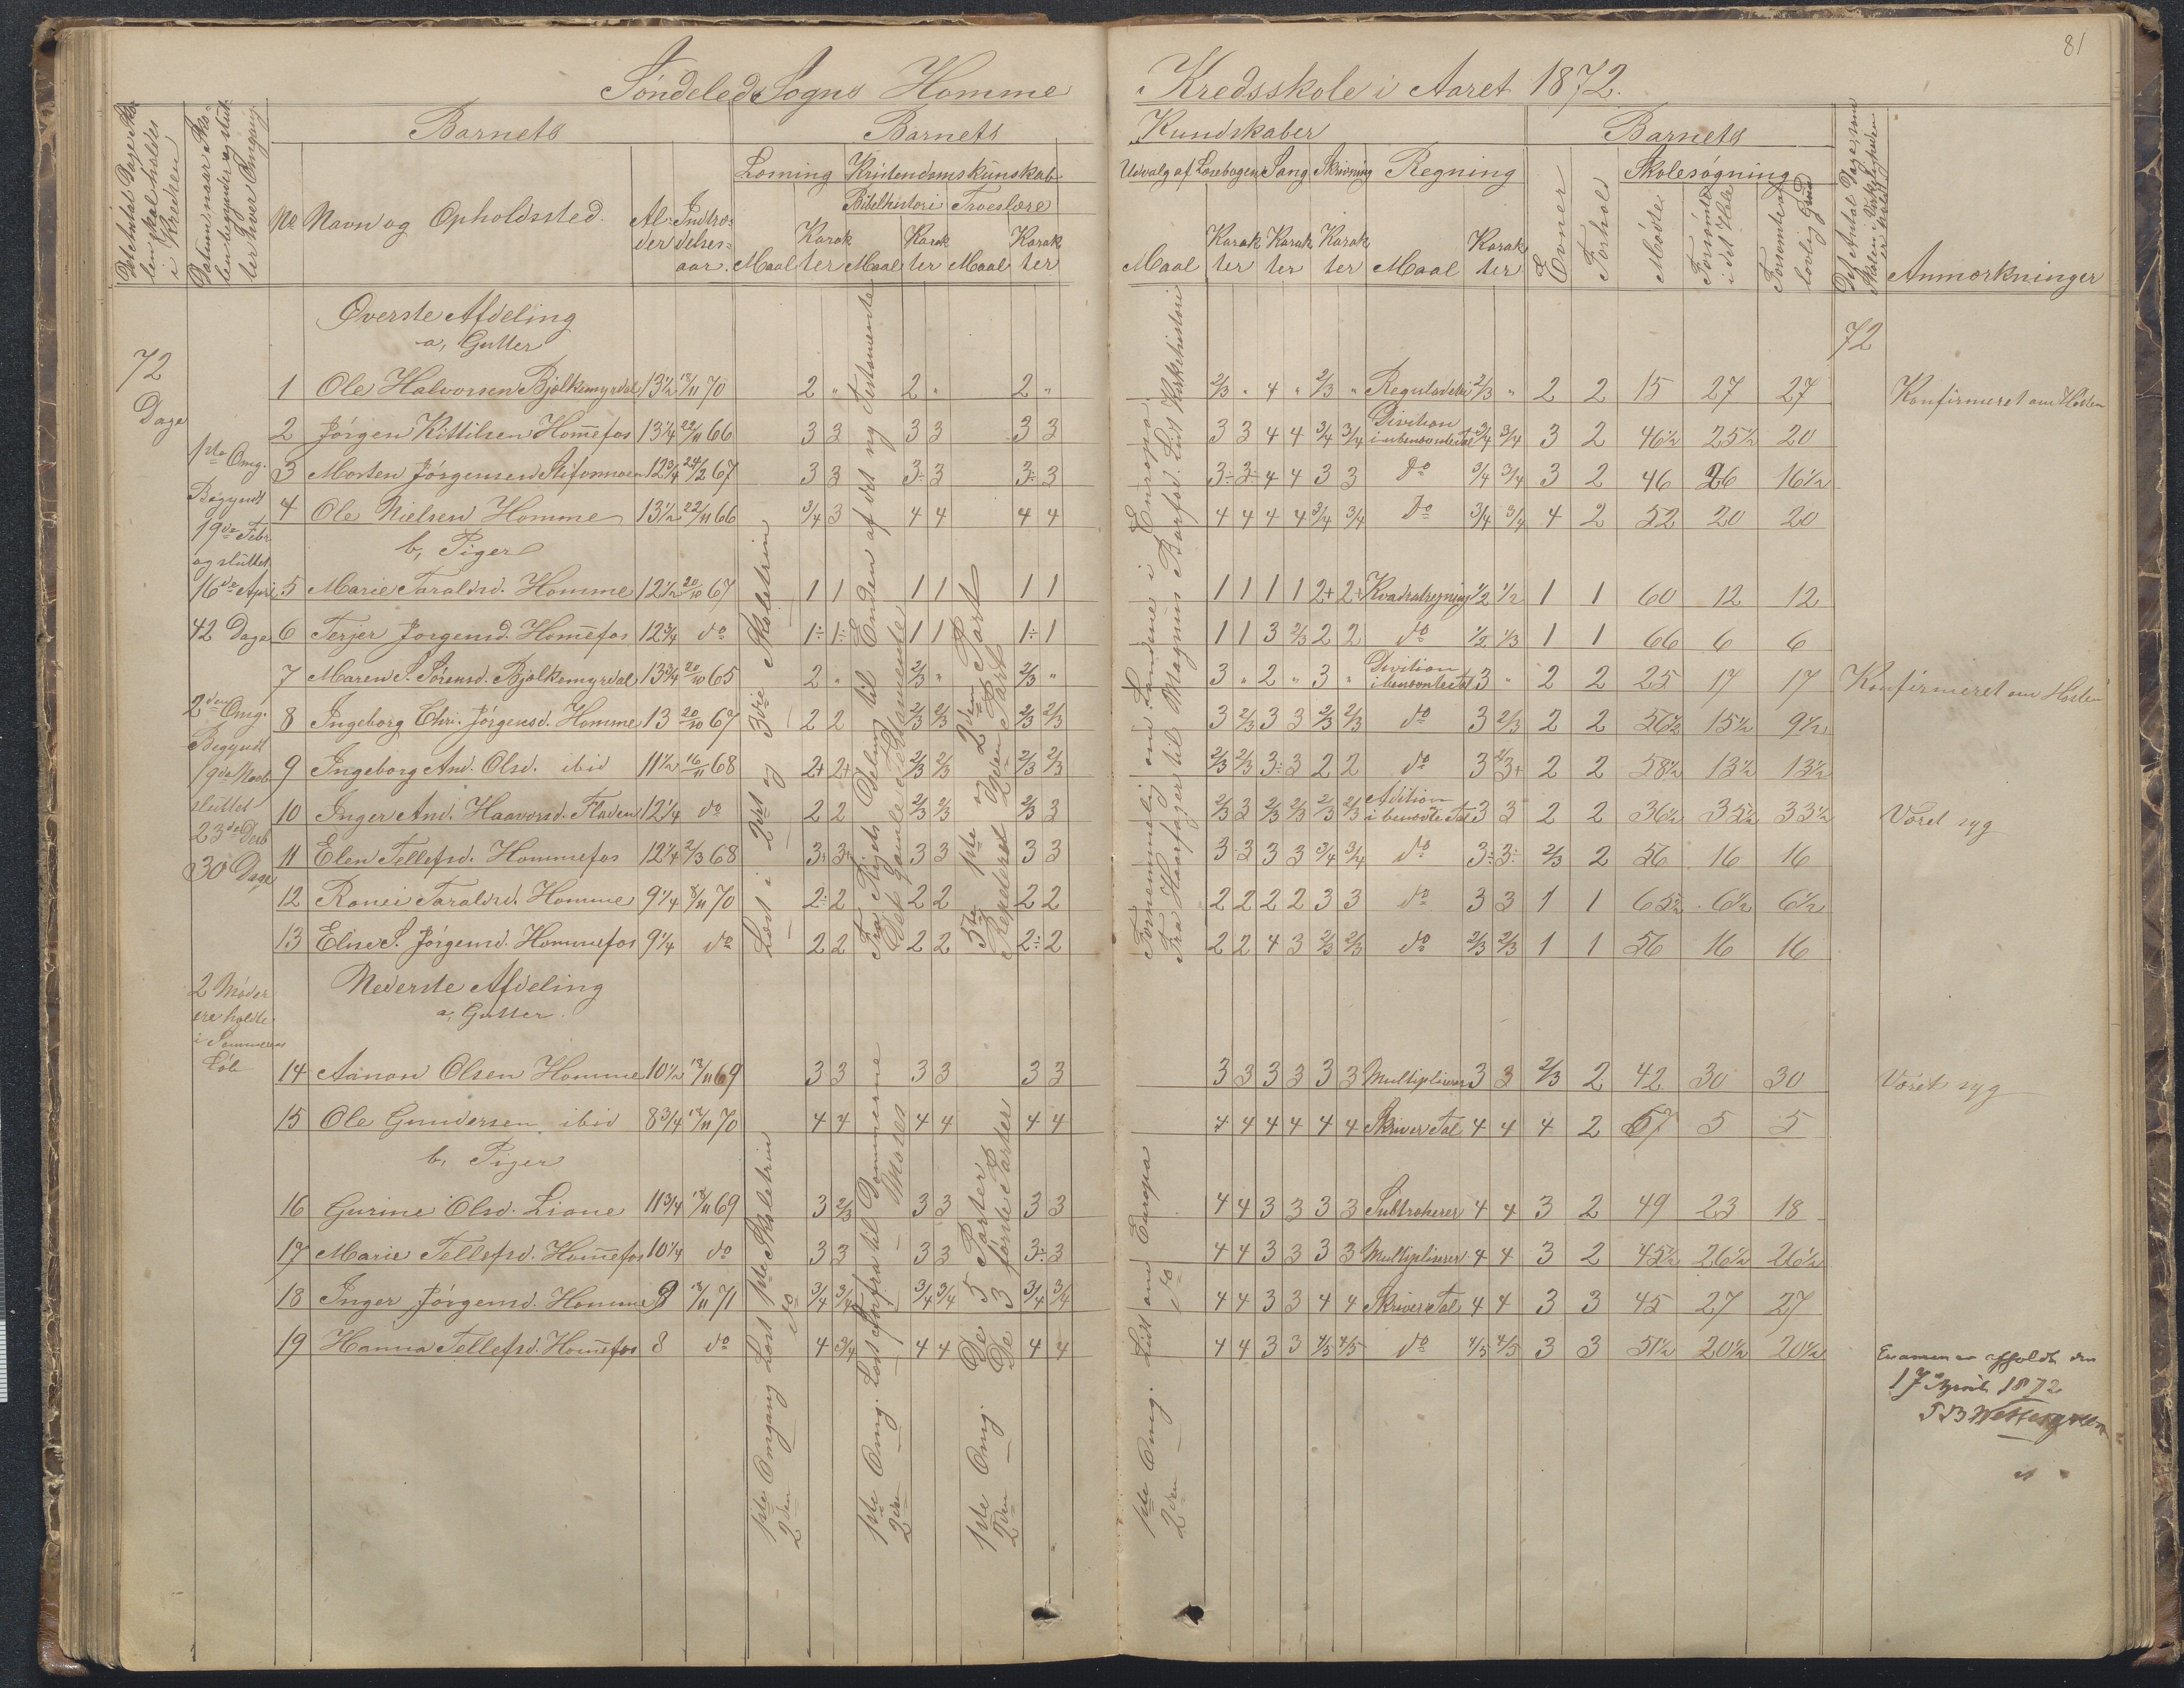 81
Søndeleds Sogns Homme Kredsskole i Aaret 1872.
Barnets Barnets Kundskaber Barnets
No Navn og Opholdssted. Alder Indtrædelsesaar.
Læsning Kristendomskunskab Udvalg af Læsebogen Sang Skrivning Regning Evner Forhold Skolesøgning
Bibelhistori Troeslære
Maal Karakter Maal Karakter Maal Karakter Maal Karakter Karakter Karakter Maal Karakter Mødte Forsømte i det Hele Forsømte af lovlig Grund Anmærkninger
Øverste Afdeling
a, Gutter
72 Dage
72
1 Ole Halvorsen Bjelkemyrdal 13 1/2 18/11 70 2 " 2 " 2 " 2/3 " 4 " 2/3 " Reguladetri 2/3 " 2 2 15 27 27 Konfirmeret om Høsten
2 Jørgen Kittilsen Hom̄efos 13 1/4 22/11 66 3 3 3 3 3 3 3 3 4 4 3/4 3/4 Division i ubenævnte Tal 3/4 3/4 3 2 46 1/2 25 1/2 20
3 Morten Jørgensen 12 3/4 24/2 67 3 3 3÷ 3 3÷ 3 3÷ 3÷ 4 4 3 3 do 3/4 3/4 3 2 46 26 16 1/2
4 Ole Nielsen Homme 13 1/2 22/11 66 3/4 3 4 4 4 4 4 4 4 4 3/4 3/4 do 3/4 3/4 4 2 52 20 20
b, Piger
5 Marie Taraldsd. Homme 12 1/2 20/10 67 1 1 1 1 1 1 1 1 1 1 2+ 2+ Kvadratregning 1/2 1/2 1 1 60 12 12
6 Terjer Jørgensd. Hom̄efos 12 3/4 do 1÷ 1÷ 1 1 1÷ 1 1 1 3 2/3 2 2 do 1/2 1/3 1 1 66 6 6
7 Maren S. Sørensd. Bjelkemyrdal 13 3/4 20/10 65 2 " 2/3 " 2/3 " 3 " 2 " 3 " Division i benævnte Tal 3 " 2 2 25 17 17 Konfirmeret om Høsten
8 Ingeborg Chri. Jørgensd. Homme 13 20/10 67 2 2 2/3 2/3 2/3 2/3 3 2/3 3 3 2/3 2/3 do 3 2/3 2 2 56 1/2 15 1/2 9 1/2
9 Ingeborg And. Olsd. ibid 11 1/2 16/11 68 2+ 2+ 2/3 2/3 2/3 2/3 2/3 2/3 3÷ 3 2 2 do 3 2/3+ 2 2 58 1/2 13 1/2 13 1/2
10 Inger And. Haavorsd. Fladen 12 1/4 do 2 2 2/3 2/3 2/3 3 2/3 3 2/3 2/3 2/3 2/3 Adition i benævte Tal 3 3 2 2 36 1/2 35 1/2 33 1/2 Været syg
11 Elen Tellefsd. Hommefos 12 1/4 2/3 68 3+ 3+ 3 3 3 3 3 3 3 3 3/4 3/4 do 3÷ 3÷ 2/3 2 56 16 16
12 Ronei Taraldsd. Homme 9 1/4 8/11 70 2÷ 2 2 2 2 2 2 2 2 2 3 3 do 3 3 1 1 65 1/2 6 1/2 6 1/2
13 Elise S. Jørgensd. Hommefos 9 1/4 do 2 2 2 2 2÷ 2 2 2 4 3 2/3 2/3 do 2/3 2/3 1 1 56 16 16
1ste Omg.
Begyndt
19de Febr
og sluttet
16de April
42 Dage
2den Omg.
Begyndt
19de Novb
sluttet
23de Decb
30 Dage
2 Møder
ere holdte
i Sommerens
Løb
Læst i 2det og 3die Skoletrin
Fra Rigets Deling til Enden af det ny Testamente
Det gamle Testamente
5te 1ste og 2den Part
Repeteret 2den Part
Fornemmelig om Landene i Europa.
Fra Haarfager til Magnus Barfod. Lidt Kirkehistori
Nederste Afdeling
a, Gutter.
14 Aanon Olsen Homme 10 1/2 18/11 69 3 3 3 3 3 3 3 3 3 3 3 3 Multiplicerer 3 3 2/3 2 42 30 30 Været syg
15 Ole Gundersen ibid 8 3/4 18/11 70 4 4 4 4 4 4 4 4 4 4 4 4 Skriver Tal 4 4 4 2 67 5 5
b, Piger
16 Gurine Olsd. Liane 11 3/4 18/11 69 3 2/3 3 3 3 3 4 4 3 3 3 3 Subtraherer 4 4 3 2 49 23 18
17 Marie Tellefsd. Hom̄efos 10 1/4 do 3 3 3 3 3÷ 3 4 4 3 3 3 3 Multiplicerer 4 4 3 2 45 1/2 26 1/2 26 1/2
18 Inger Jørgensd. Homme 9 18/11 71 3/4 3/4 3/4 3/4 3/4 3/4 4 4 3 3 4 4 Skriver Tal 4 4 3 3 45 27 27
19 Hanna Tellefsd. Hom̄efos 8 do 4 3/4 4 4 4 4 4 4 3 3 4/5 4/5 do 4/5 4/5 3 3 51 1/2 20 1/2 20 1/2
1ste Omgang Læst 1ste Skoletrin
2den — do
1ste Omg. Læst forfra til Dommerne
2den — — — Moses
1ste Omg. De 5 Parter
2den — De 3 første Parter
1ste Omg. Lidt om Europa
2den — do
Examen er afholdt den
17 April 1872